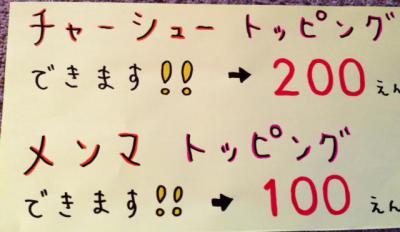 チャーシュー トッピング
できます!! → 200えん
メンマ トッピング
できます!! → 100えん